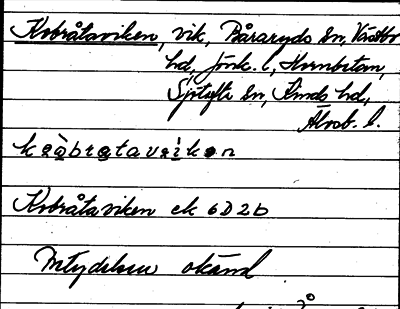 Kobråtaviken, vik, Båraryds sn, Västbo
hd, Jönk. l., Hornbetan,
Sjötofta sn, Kinds hd,
Älvsb. l.
Kobråtaviken ek 6D2b
Betydelsen okänd